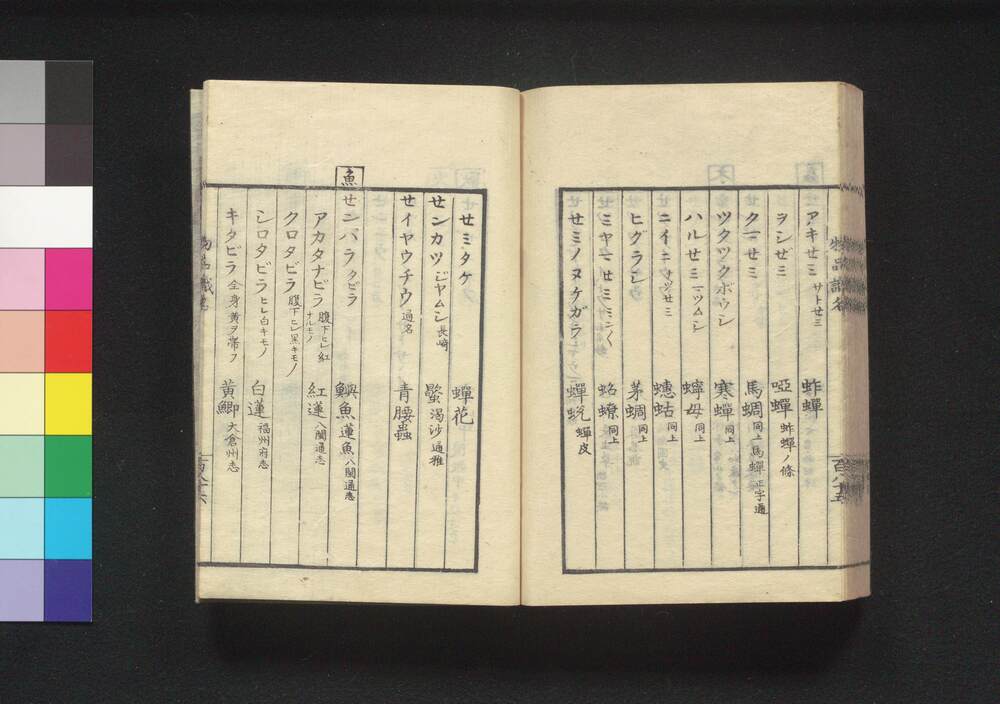 アキセミ サトセミ 蚱蟬
ヲシゼミ 啞蟬 蚱蟬ノ條
クマセミ 馬蜩 同上 馬蟬 正字通
ツクツクボウシ 寒蟬 同上
ハルセミ マツムシ 蟳母 同上
ニイニイセミ 蟪蛄 同上
ヒグラシ 茅蜩 同上
ミヤマセミ ミンミン 蛁蟟 同上
セミノヌケガラ 蟬蛻 蟬皮
セミタケ 蟬花
センカツ ジヤムシ 長崎 鼈渴沙 通雅
セイヤウチウ 通名 青腰蟲
魚
センバラ タビラ 鱮魚 蓮魚 八閩通志
アカタナビラ 腹下ヒレ紅ナルモノ 紅蓮 八閩通志
クロタビラ 腹下ヒレ黒キモノ
シロタビラ ヒレ白キモノ 白蓮 福州府志
キタビラ 全身黄ヲ帶フ 黄鯽 大倉州志